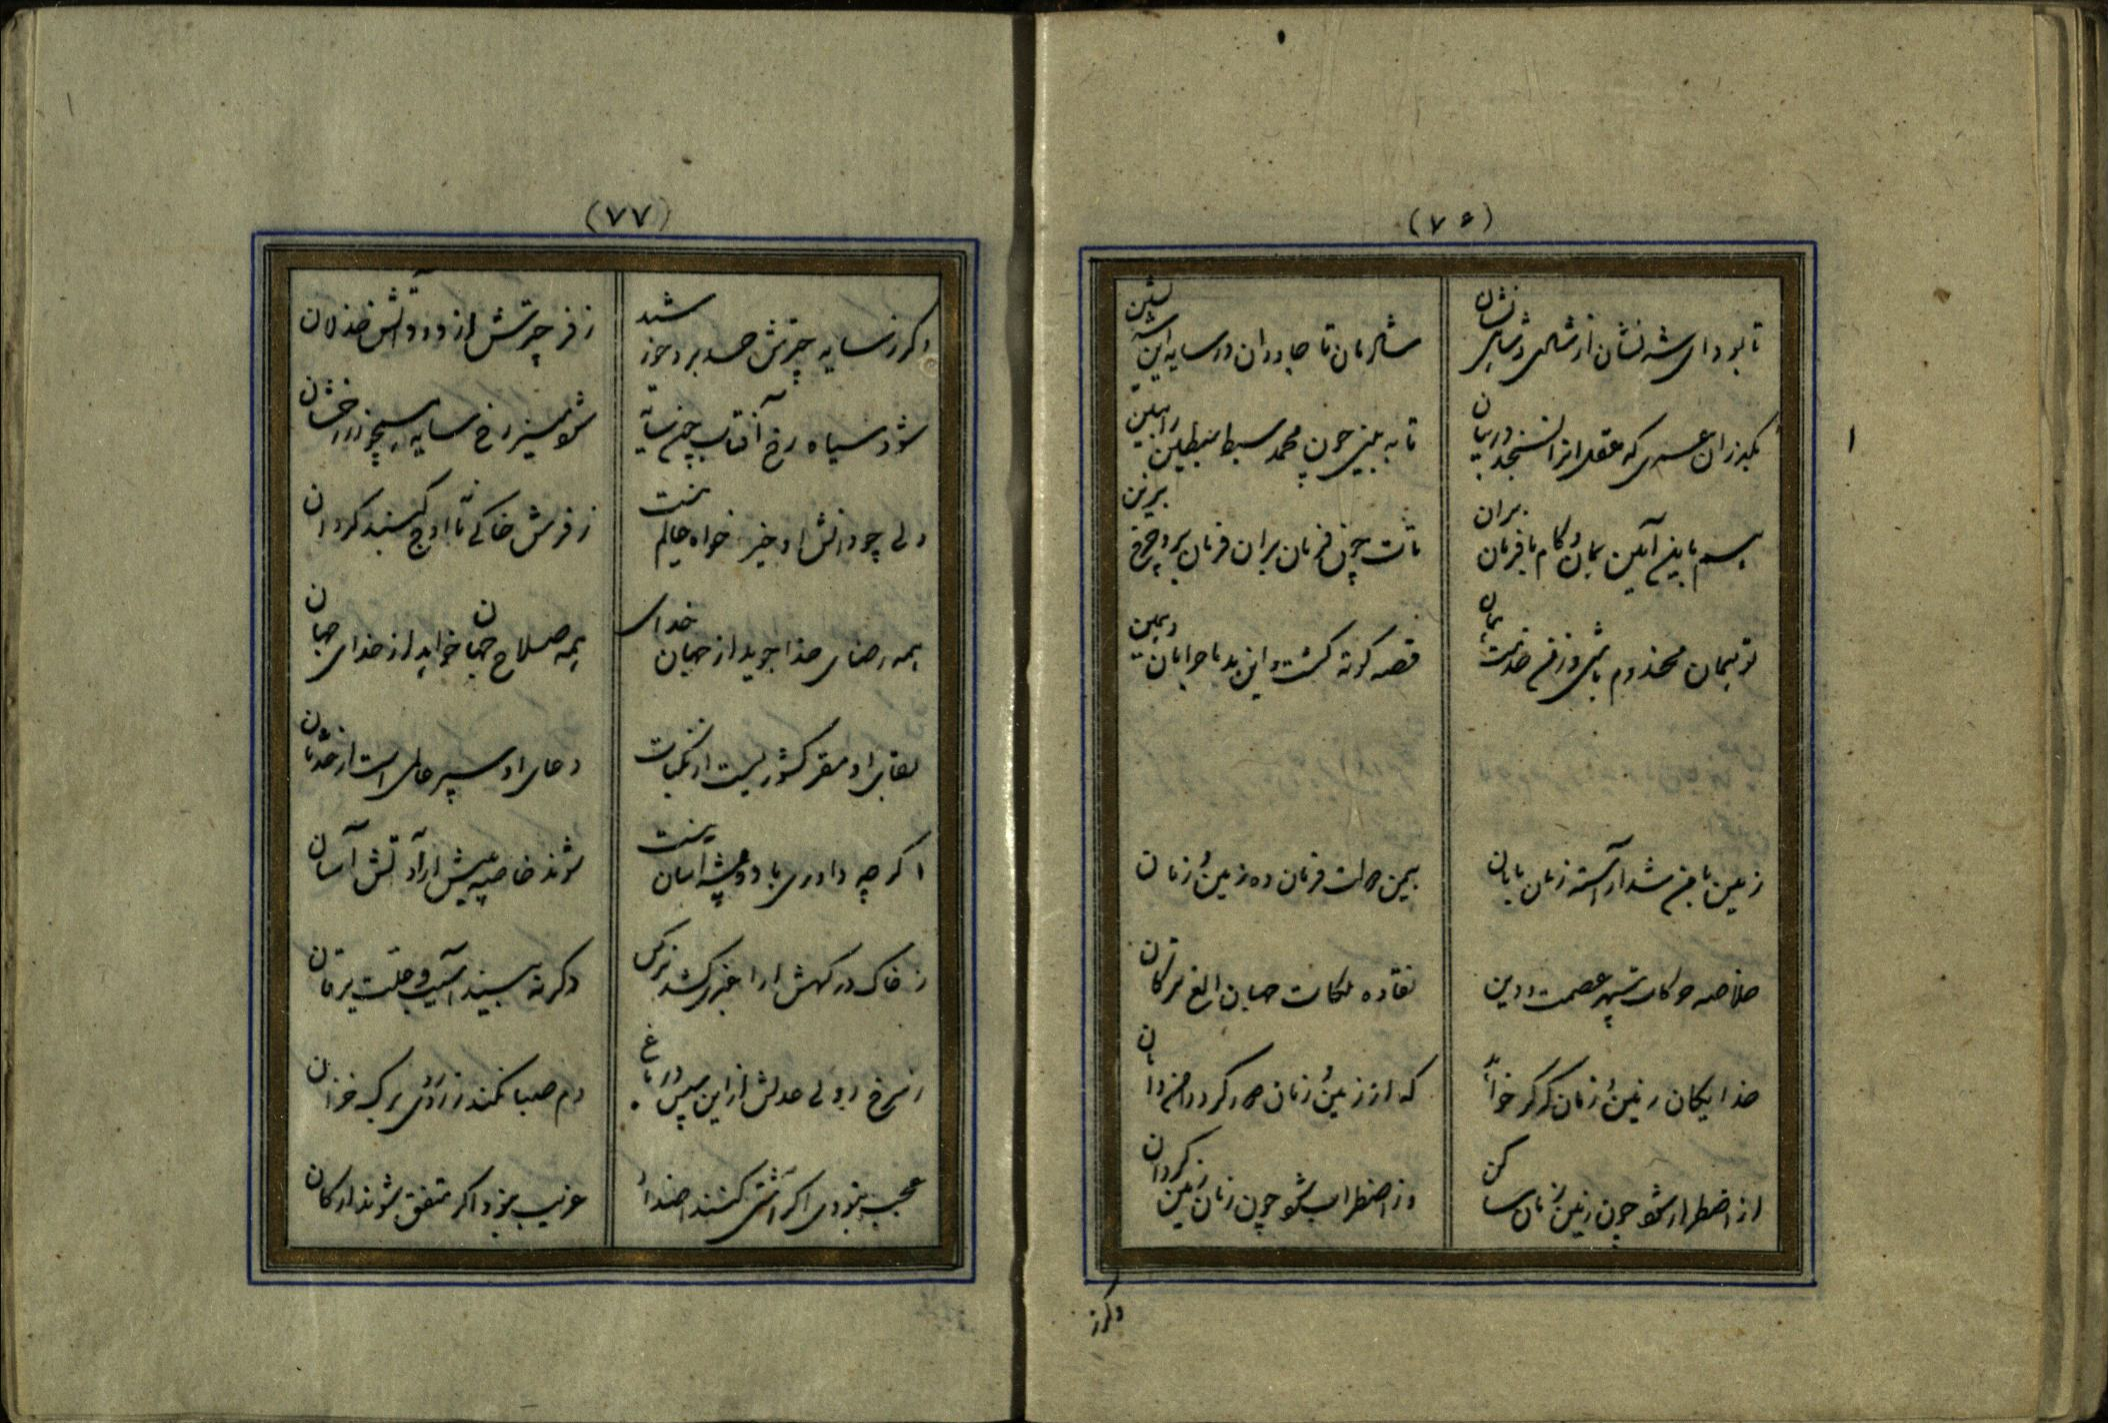 (۷۶)
تا بود ای شه نشان از شاهی و شاهی نشان
شادمان تا جاودان در سایه این شه نشین
بگذران عمری که عقل آنرا نسنجد در بیان
تا به بینی چون محمد سبط سبطین
هم باین آیین بمان و کام با فرمان بران
تات چون فرمان بران فرمان برد چرخ برین
تو بمان مخدوم باشی و زفر خدمتت
قصه کوته گشت و این
زمین شد آراسته زمان
بیمن دولت فرمان ده زمین و زمان
خلاصه حرکات سپهر عصمت و دین
نقاوه ملکات جهان الغ ترکان
خدایگان زمین و زمان که گر خواهد
که از زمین و زمان گردد
از اضطرار شود چون زمین زمان ساکن
وز اضطراب شود چون زمان زمین گردان
وگر ز
(۷۷)
وگر ز سایه چترش حسد برد خورشید
ز فر چترش از دود آتش خذلان
شود سیاه رخ آفتاب چون سایه
شود منیر رخ سایه همچو خور رخشان
ولی چو دانش او خیر خواه عالم نیست
ز فرش خاکی تا اوج گنبد گردان
همه رضای خدا جوید از جهان خدای
همه صلاح جهان خواهد از خدای جهان
بقای او مفر کشوریست از نکبات
دعای او سپر عالمی است از حدثان
اگر چه داوری باد و پشه آسان نیست
شوند خاصه به پیش ارادتش آسان
ز خاک درگهش ار اغبری کشد نرگس
دگر نه بیند آسیب و علت یرقان
ز سرخ رویی عدلش ازین سپس در باغ
دم صبا نکند زردروی برگ خزان
عجب نبودی اگر آشتی کنند اضداد
غریب نبود اگر متفق شوند ارکان